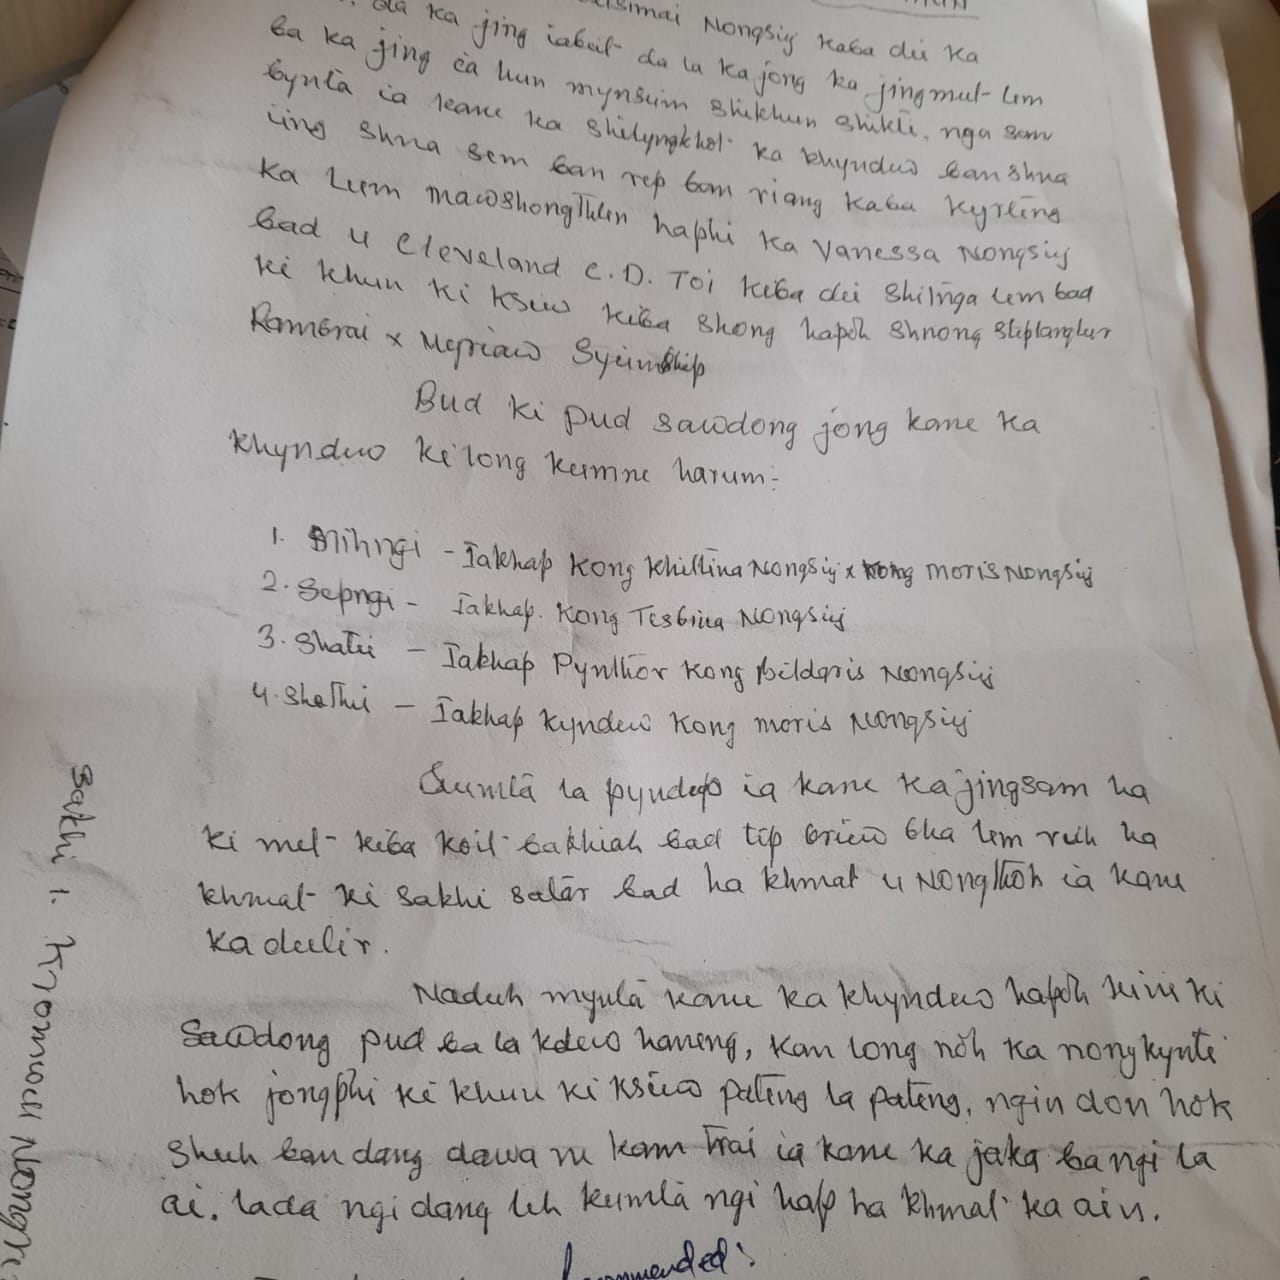 Nongsiej kaba dei ka
da ka jing iabeit da la ka jong ka jingmut lem
ba ka jing ia hun mynsiim shikhun shikti, nga sam
bynta ia kane ka shilyngkhot ka khyndew ban shna
iing shna sem ban rep bam riang kaba kyrteng
ka Lum Mawshongthlen haphi ka Vanessa Nongsiej
bad u Cleveland C.D. Toi kiba dei shilnga lem bad
ki khun ki ksiew kiba shong hapoh shnong
Rambrai x Mepriaw Syiemship
Bud ki pud sawdong jong kane ka
khyndew ki long kumne harum:-
1. Mihngi - Iakhap Kong Khillina Nongsiej x Moris Nongsiej
2. Sepngi - Iakhap. Kong Tesbina Nongsiej
3. Shatei - Iakhap Pynthor Kong Bildaris Nongsiej
4. Shathi - Iakhap Kyndew Kong Moris Nongsiej
Kumta la pyndep ia kane ka jingsam ha
ki met kiba koit bakhiah bad tip briew bha lem ruh ha
khmat ki sakhi batar bad ha khmat u Nongthoh ia kane
ka dulir.
Naduh mynta kane ka khyndew hapoh kine ki
sawdong pud ba la kdew haneng, kan long noh ka nongkynti
hok jongphi ki khun ki ksiew pateng la pateng, ngin don hok
shuh ban dang dawa ne kam trai ia kane ka jaka ba ngi la
ai. lada ngi dang leh kumta ngi hap ha khmat ka ain.
Sakhi 1.